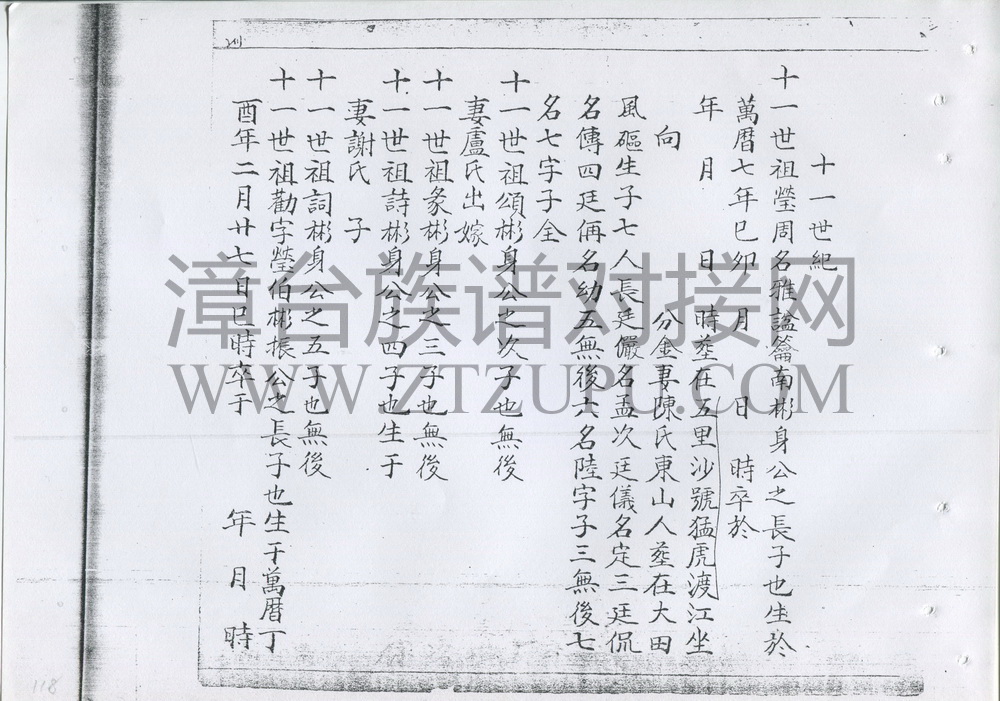 十一世紀
十一世祖瑩周名雅謚籥南彬身公之長子也生於
萬曆七年巳卯 月 日 時卒於
年 月 日 時塟在五里沙號猛虎渡江坐
向 分金妻陳氏東山人塟在大田
風礰生子七人長廷儼名孟次廷儀名定三廷侃
名傳四廷偁名幼五無後六名陸字子三無後七
名七字子全
十一世祖頌彬身公之次子也無後
妻盧氏出嫁
十一世祖彖彬身公之三子也無後
十一世祖詩彬身公之四子也生于
妻謝氏 子
十一世祖詞彬身公之五子也無後
十一世祖勸字瑩伯彬振公之長子也生于萬曆丁
酉年二月廿七日巳時卒于 年 月 時
漳台族谱对接网
WWW.ZTZUPU.COM
118